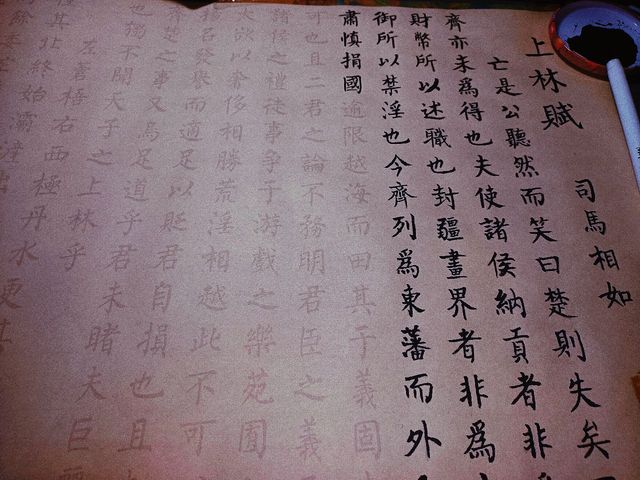 上林賦
司馬相如
亡是公聽然而笑曰楚則失矣
齊亦未為得也夫使諸侯納貢者非
財幣所以述職也封疆畫界者非為
御所以禁淫也今齊列為東藩而外
肅慎捐國逾限越海而田其于義固
可也且二君之論不務明君臣之義
諸侯之禮徒事爭于游戲之樂苑囿
大欲以奢侈相勝荒淫相越此不可
揚名發譽而適足以貶君自損也且
楚之事又烏足道乎君未睹夫巨麗
也獨不聞天子之上林乎
蒼梧右西極丹水更其
其北終始灞滻出